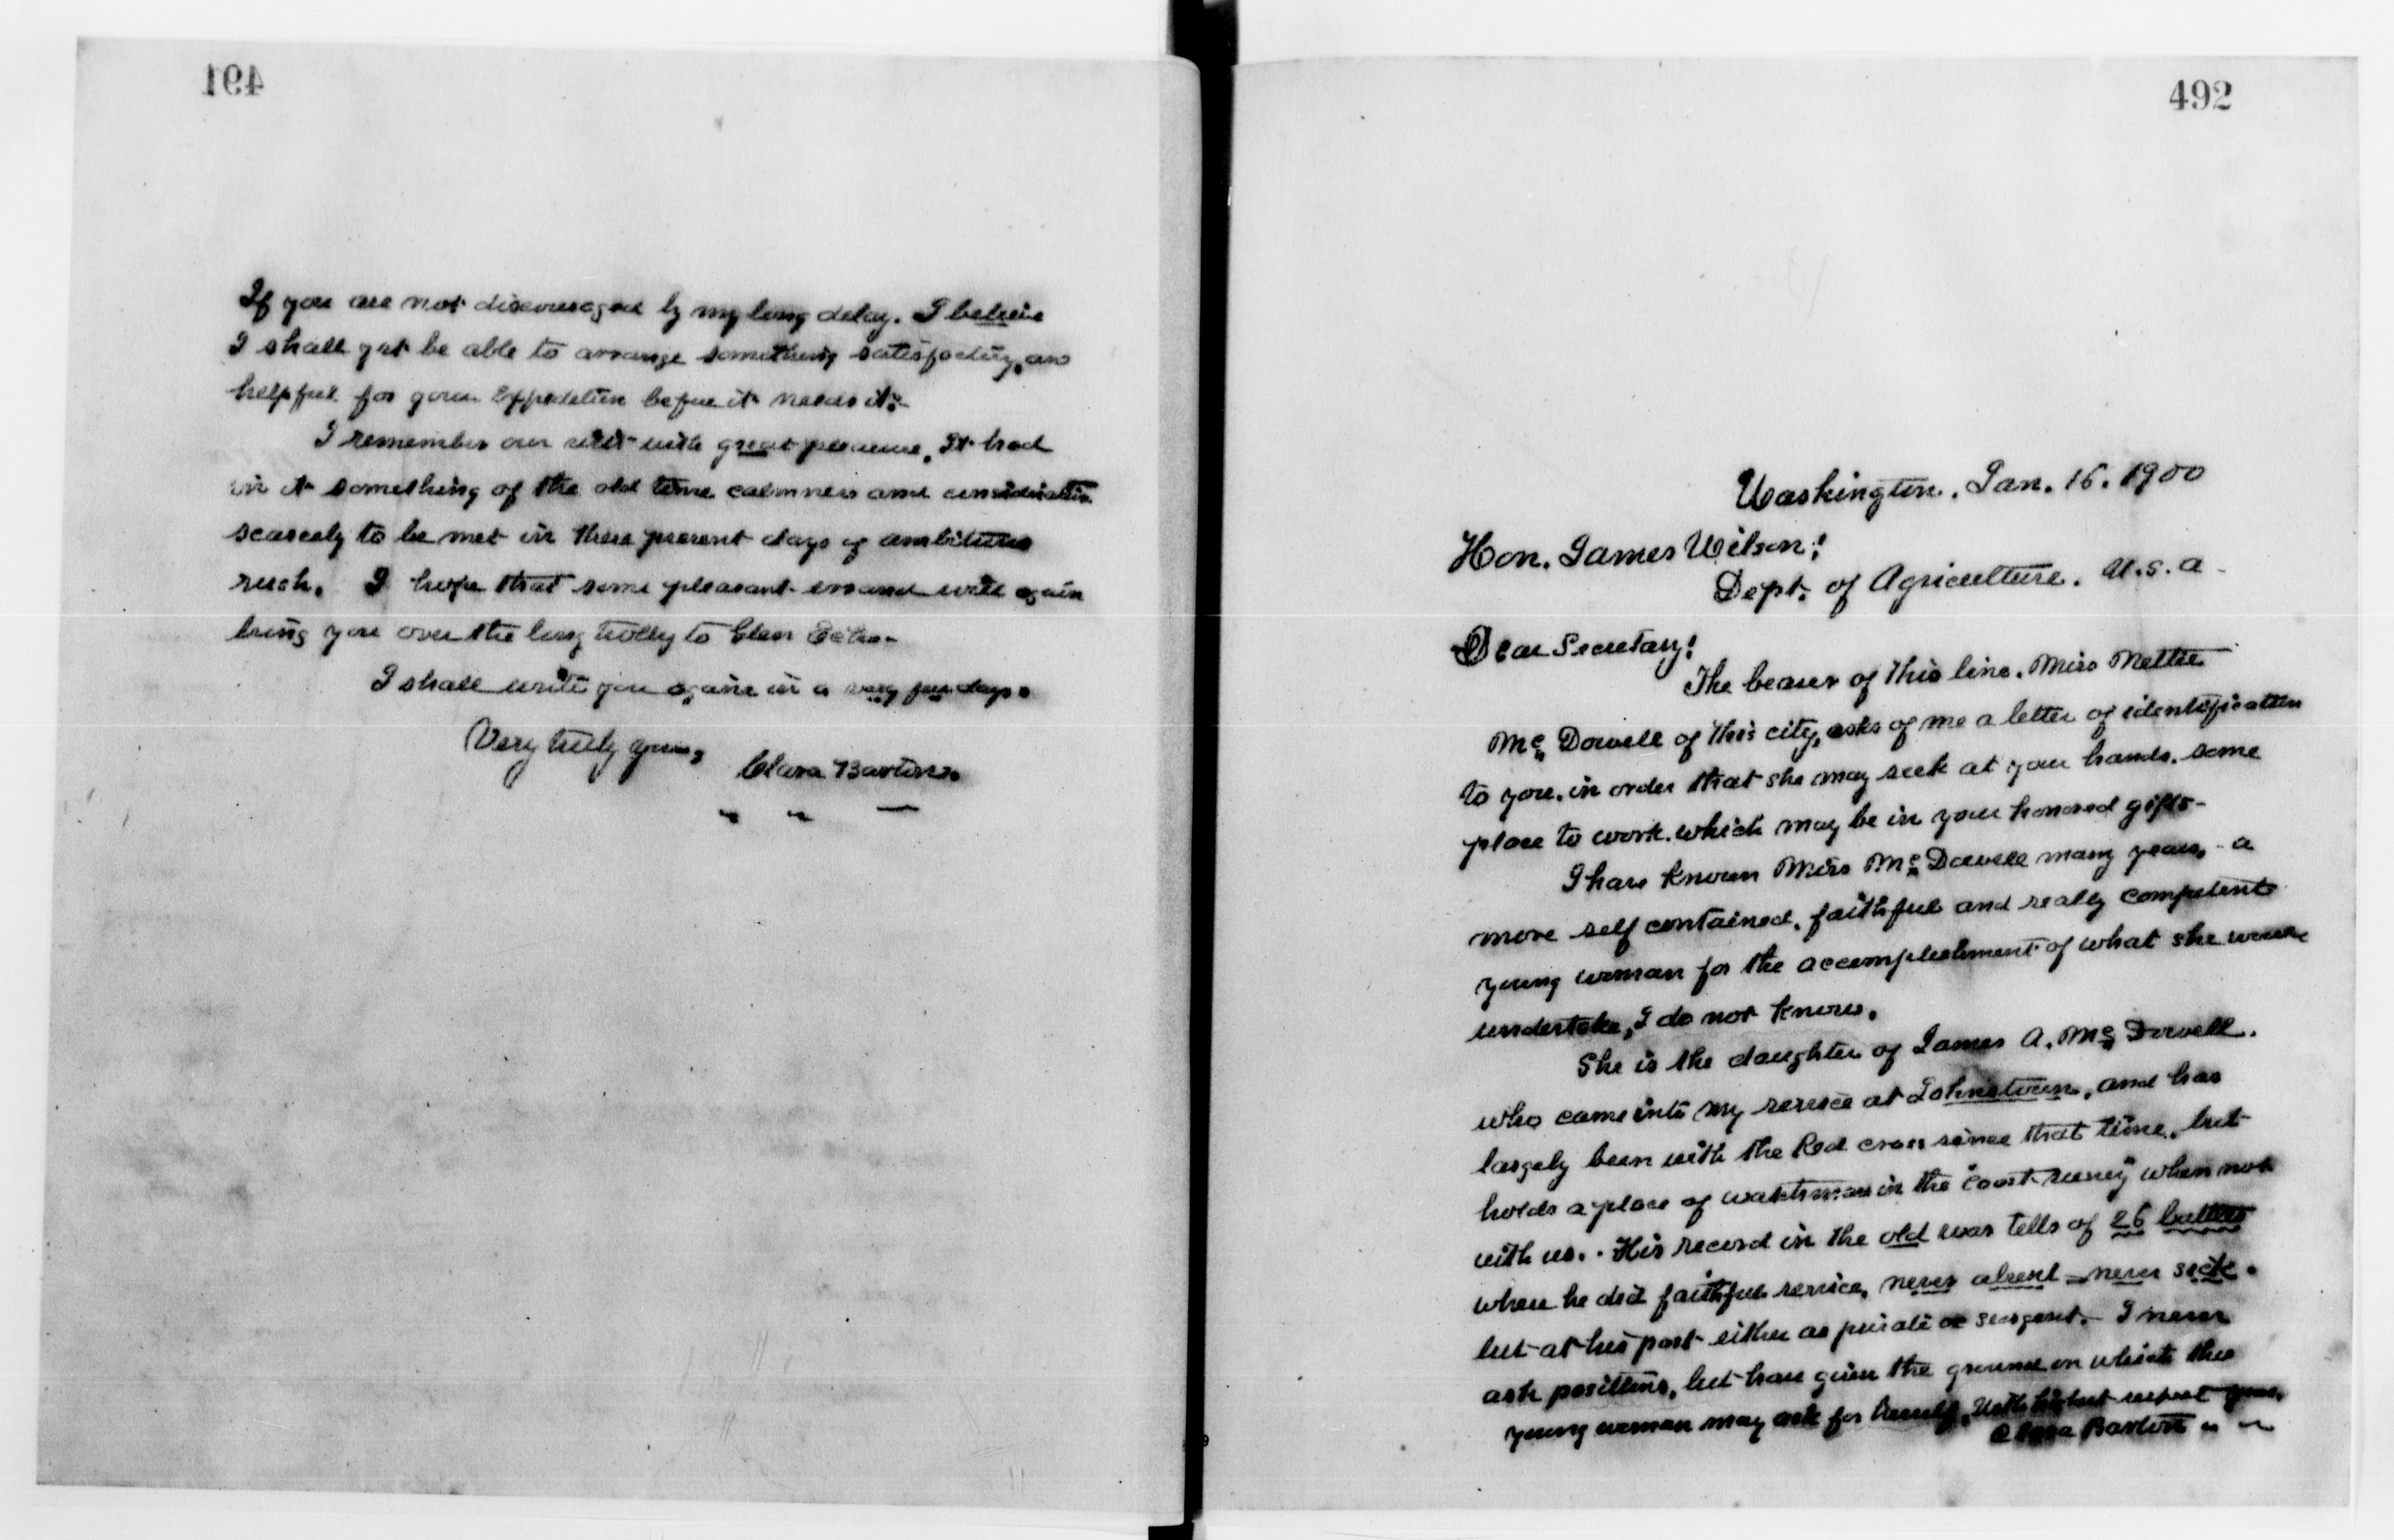 491
If you are not discouraged by my long delay. I believe
I shall yet be able to arrange something satisfactory, and
helpful for your Expedition before it needs it.-
I remember our visit with great pleasure, It had
in it something of the old time calmness and consideration
scarcely to be met in these present days of ambitious
rush. I hope that some pleasant errand will again
bring you over the long trolley to Glen Echo-
I shall write you again in a very few days.
Very truly yours,
Clara Barton.
492
Washington. Jan. 16. 1900
Hon. James Wilson!
Dept. of Agriculture. U.S.A-
Dear Secretary!
The bearer of this line. Miss Mettie
Mc Dowell of this city, asks of me a letter of identification
to you. in order that she may seek at your hands. some
place to work. which may be in your honored gifts-
I have known Miss Mc Dowell many years, - a
more self contained, faithful and really competent
young woman for the accomplishment of what she would
undertake, I do not know.
She is the daughter of James A. Mc Dowell.
who came into my service at Johnstown, and has
largely been with the Red cross since that time, but
holds a place of watchman in the "Coast survey" when not
with us. - His record in the old war tells of 26 battles
when he did faithful service, never absent - never sick.
but at his post either as private or sergent.- I never
ask positions, but have given the ground on which this
young woman may ask for herself, With highest respect yours,
Clara Barton